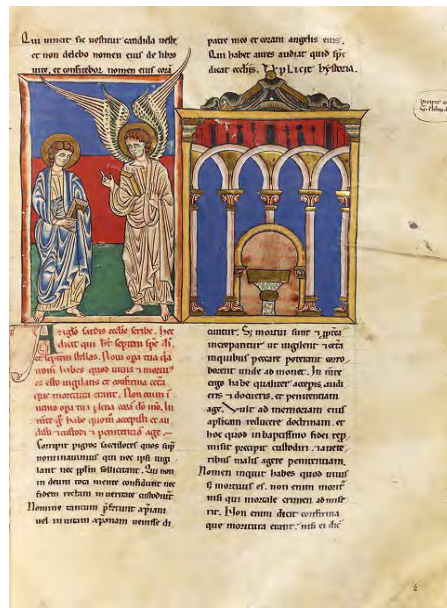 Qui uincit sic uestitur candida ueste
et non delebo nomen eius de libro
uite. et confitebor nomen eius corã
patre meo et coram angelis eius.
Qui habet aures audiat quid sp̄c
dicat ecclis. Explicit hystoria.
Anglo sardis ecclie scribe. hec
dicit qui ht septem sp̄c di
et septem stellas. Noui opa tua qa
nom̄ habes quod uiuis
es esto uigilans et confirma
que moritura erant. Non enim ī
uenio opa tua plena corā do mo. In
mte habe quom̄ accepisti et au
disti et custodi et penitentiā age.
Corripit pigros sacerdotes quos sup̄
nominauimus qui nec ipsi uigi
lant nec pplm sollicitant. Qui non
in deum tota mente confidunt nec
fidem rectam in ueritate custodiunt
Nomine tantum xpiani
uel in uitam xpianam uenisse di
cuntur. mortui sunt
increpantur ut uigilent
in quibus peccare poterant corro
borent unde ad monet. In mte
ergo habe qualiter acceperis audi
eris et docueris. et penitentiam
age. ad memoriam eius
aplicam reducere doctrinam. et
hoc quod in baptissimo fidei rep
misit precipit custodiri. a uete
ribus malis agere penitentiam.
Nomen inquit habes quod uiuis
mortuus es. non enim morit
nisi qui mortale crimen admise
rit. Non enim dicit confirma
que moritura erant. nisi ei